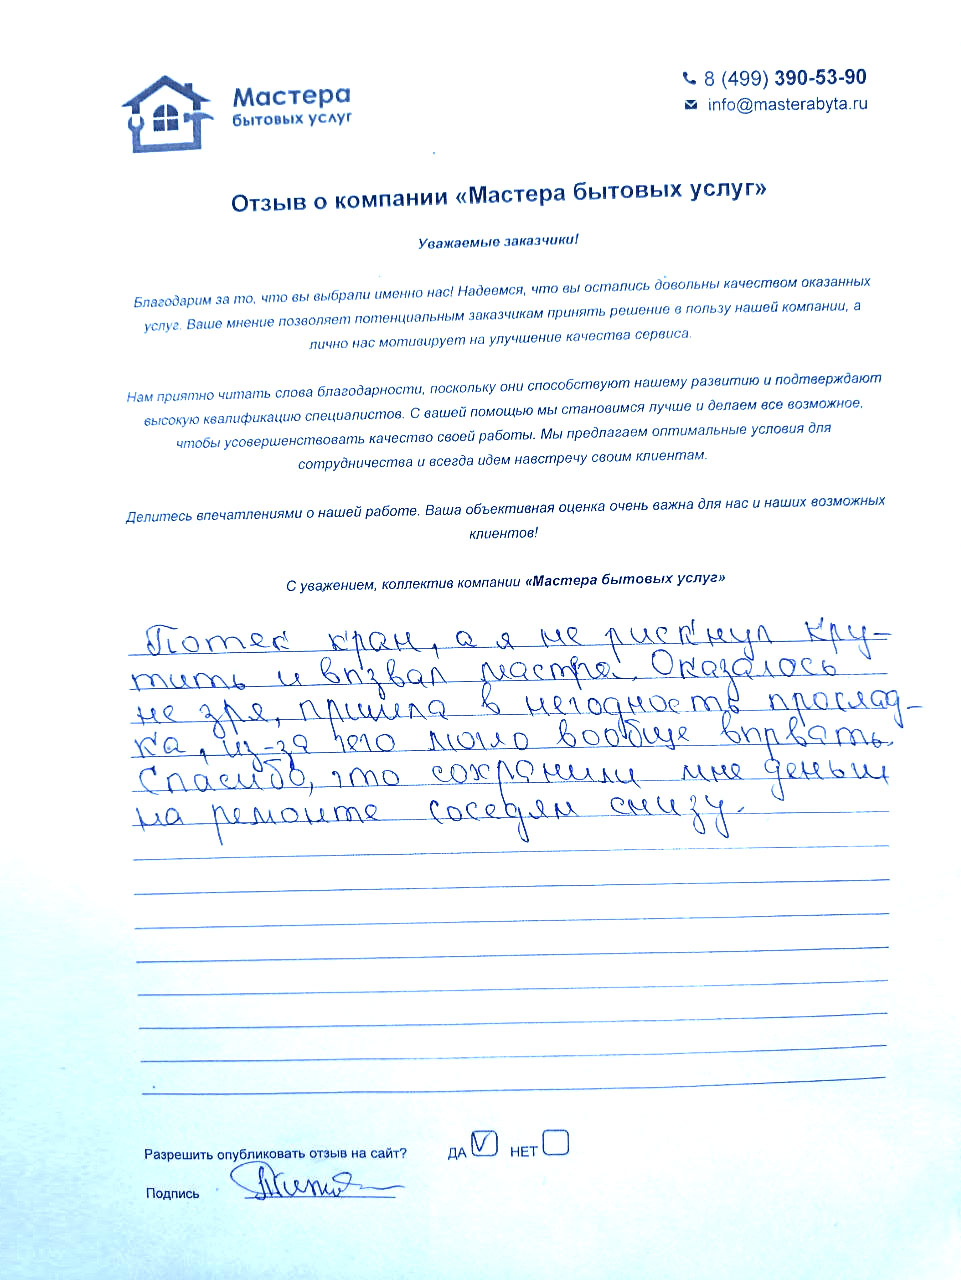 Мастера
бытовых услуг
8 (499) 390-53-90
info@masterabyta.ru
Отзыв о компании «Мастера бытовых услуг»
Уважаемые заказчики!
Благодарим за то, что вы выбрали именно нас! Надеемся, что вы остались довольны качеством оказанных
услуг. Ваше мнение позволяет потенциальным заказчикам принять решение в пользу нашей компании, а
лично нас мотивирует на улучшение качества сервиса.
Нам приятно читать слова благодарности, поскольку они способствуют нашему развитию и подтверждают
высокую квалификацию специалистов. С вашей помощью мы становимся лучше и делаем все возможное,
чтобы усовершенствовать качество своей работы. Мы предлагаем оптимальные условия для
сотрудничества и всегда идем навстречу своим клиентам.
Делитесь впечатлениями о нашей работе. Ваша объективная оценка очень важна для нас и наших возможных
клиентов!
С уважением, коллектив компании «Мастера бытовых услуг»
Потек кран, а я не рискнул кру-
тить и вызвал мастера. Оказалось
не зря, пришла в негодность проклад-
ка, из-за чего могло вообще вырвать.
Спасибо, что сохранили мне деньги
на ремонте соседям снизу.
Разрешить опубликовать отзыв на сайт? ДА НЕТ
Подпись